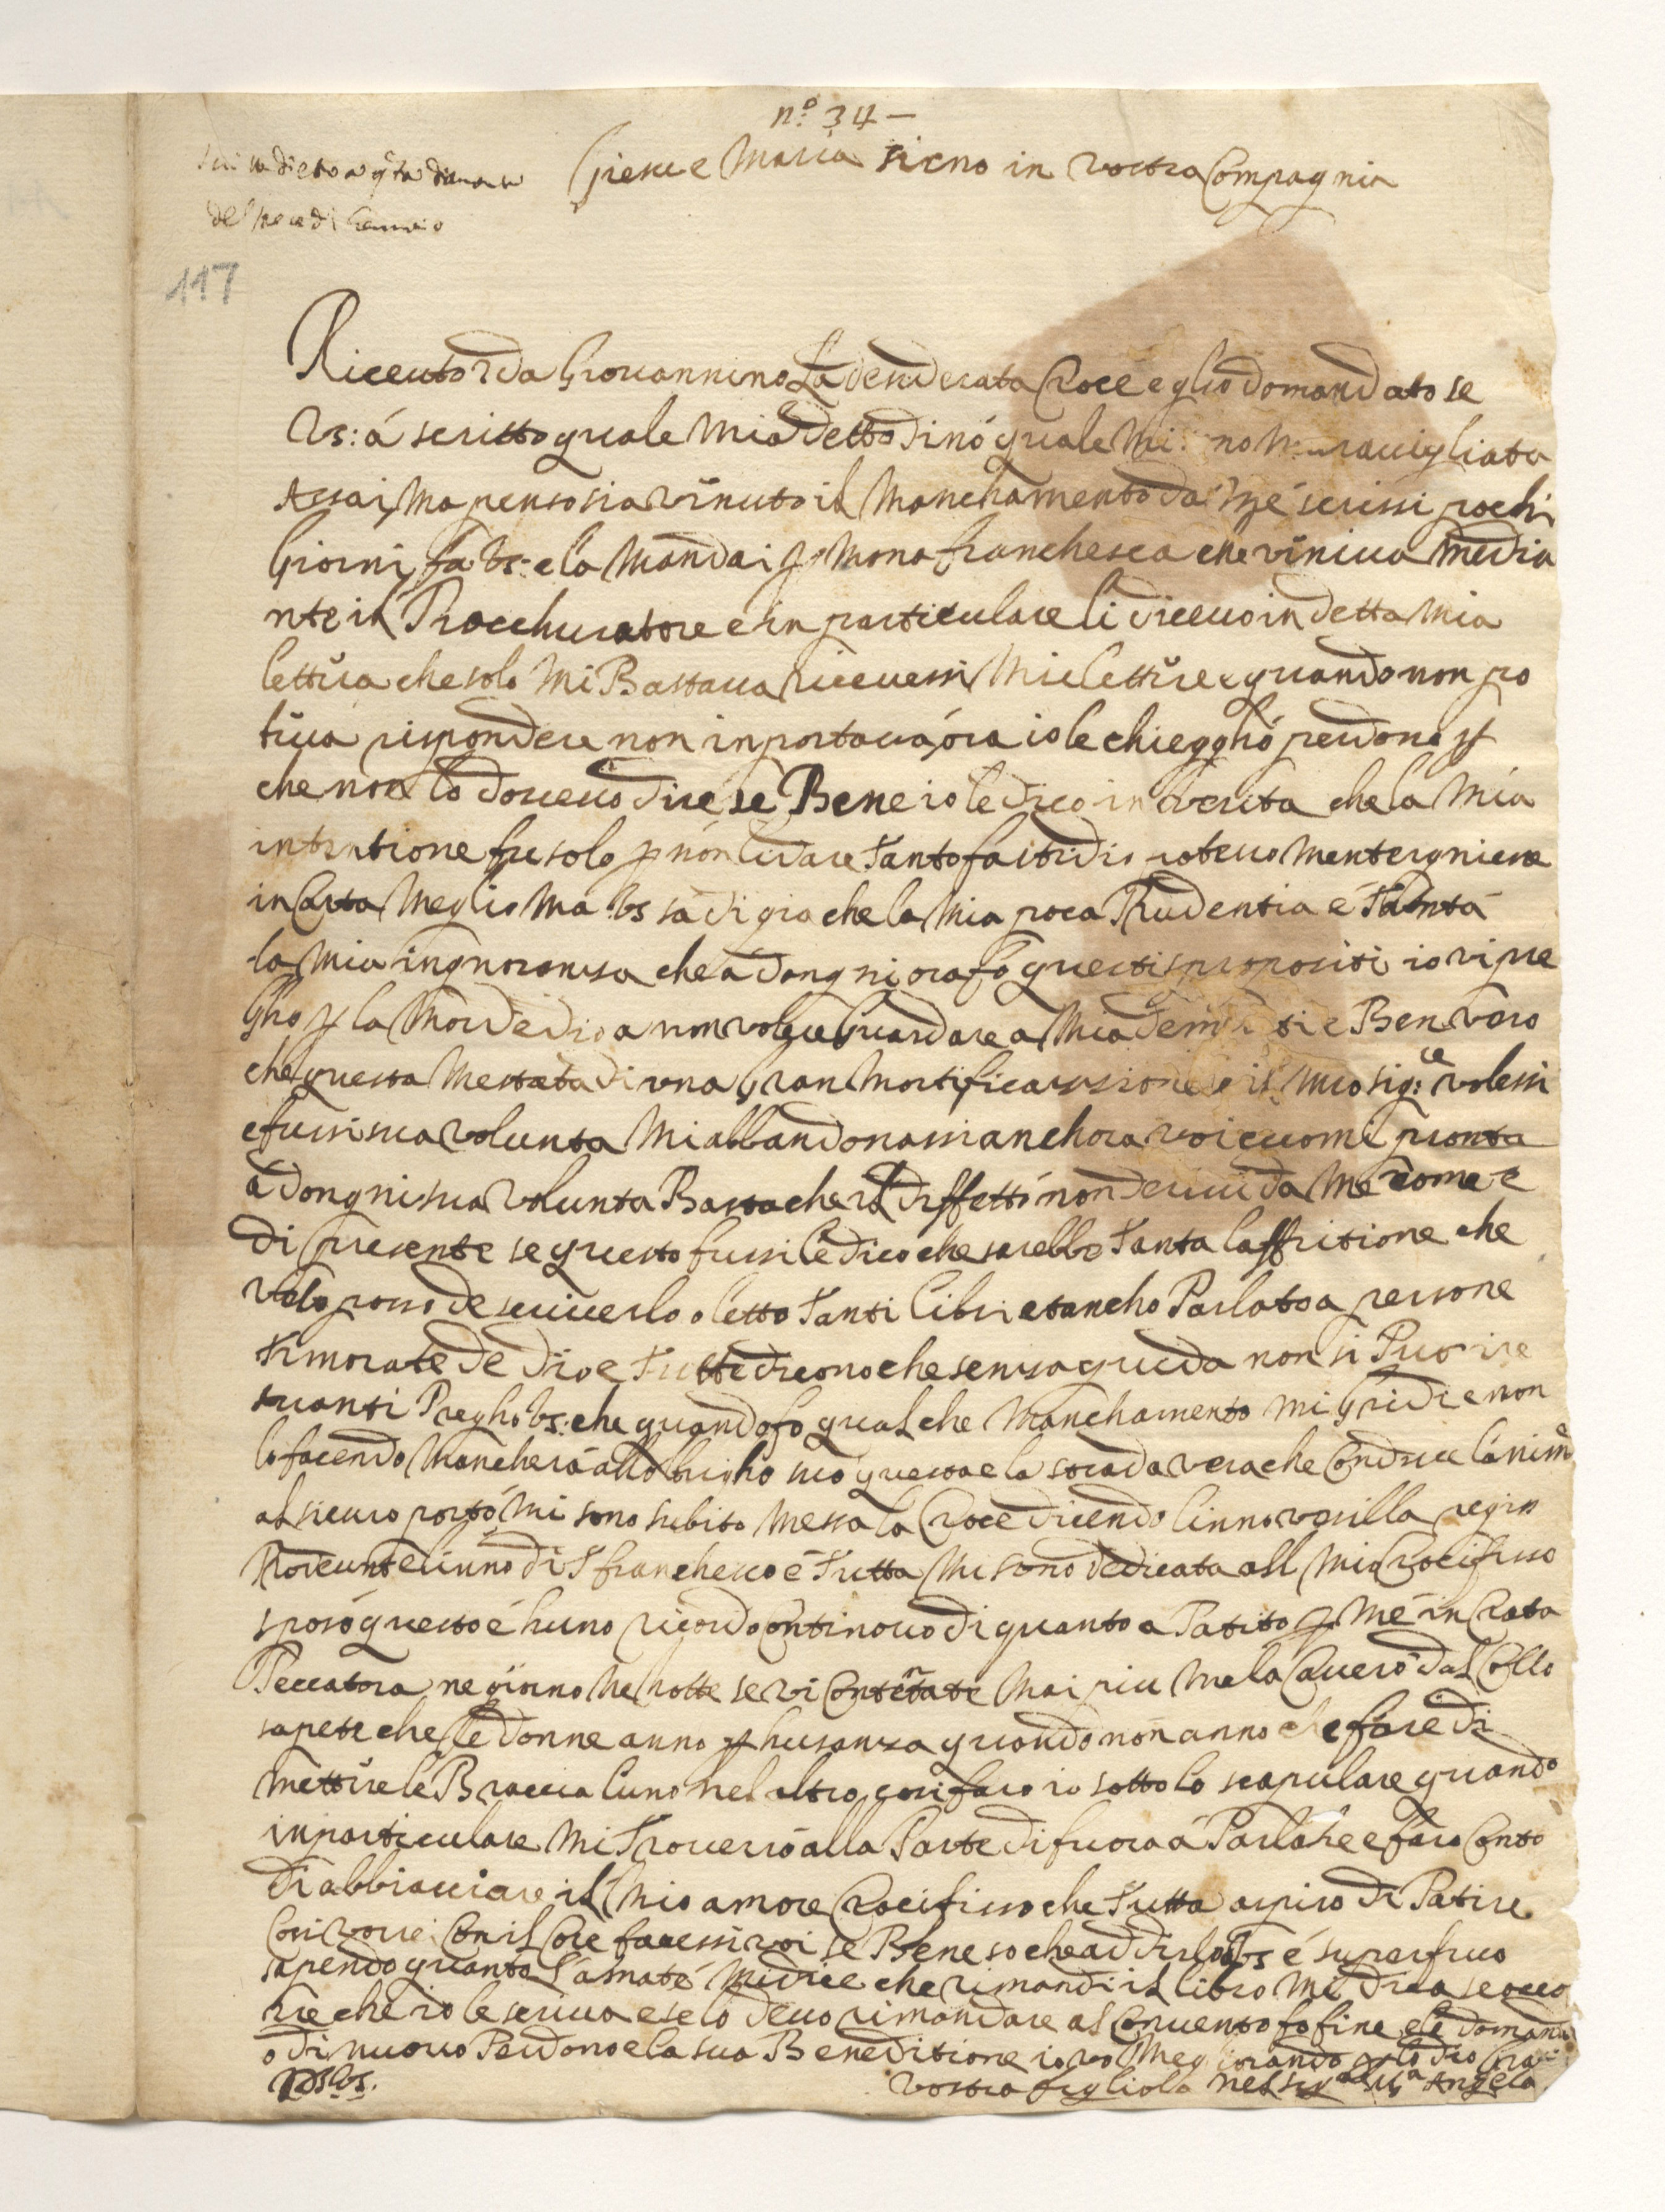 nº. 34 –
Giesu e Maria sieno in vostra Compagnia
del mese di Gennaio
117
Riceuto da Giovannino La desiderata Croce e glio domandato se
Vs: á scritto quale mia detto di nó quale mi no maravigliata
Assai, ma penso sia vinuto il manchamento da mé scrissi pochi
Giorni fa Vs: e la mandai p mona franchesca che viniva media
nte il Procchuratore e in particulare li dicevo in detta mia
lettira che solo mi Bastava ricevessi mie lettire e quando non po
tiva rispondere non inportava, óra io le chiegghó perdono p
che non lo dovevo dire se Bene io le dico in verita che la mia
intintione fu solo p nón lidare tanto fastidio potevo mentergniene
in Carta meglio ma Vs sa di gia che la mia poca Prudentia é Tanta
la mia ingnoransa che a dongni ora fo questi spropositi io vi pre
Gho p la mor de dio a non volere Guardare a mia demeriti e Ben vero
che questa me stata di una Gran mortificassione e il mio sig:ce volessi
e fussi sua volunta mi abbandonassi anchora voi eccomi pronta
a dongni sua volunta Basta che il diffetti non derivi da me come e
di presente se questo fussi le dico che sarebbe Tanta laffritione che
nolo posso descriverlo o letto Tanti libri et ancho Parlato a persone
timorate de dio e Tutte dicono che sensa guida non si Puo ire
avanti Pregho Vs: che quando fo qualche manchamento mi Gridi e non
lo facendo mancherá allobrigho suo questa e la strada vera che Conduce lánima
al sicuro portó mi sono subito messa la Croce dicendo linno vesilla regin
Prodeunt e linno di S franchesco é Tutta mi sono dedicata all mio Crocifisso
sposó questo é huno ricordo Continovo di quanto a Patito p mé in Crata
Peccatora ne giorno ne notte se vi Contentate mai piu me la Caverò dal Collo
sapete che le donne anno p husansa quando non anno che fare di
mettire le Braccia luno nel altro, cosi faro io sotto lo scapulare quando
inparticulare mi Troverrò alla Parte di fuora á Parlare e faro Conto
di abbracciare il mio amore Crocifisso che Tutta aspiro di Patire
Cosi vorrei Con il Core facessi voi se Bene so che ad dirlo a Vs é superfruo
sapendo quanto lámate mi dice che rimandi il libro mi dica se occo
rre che io le scriva e se lo devo rimandare al Convento fo fine e le domand
o di nuovo Perdono e la sua Beneditione
Di Vs.
vostra figliola nel sigre Angela